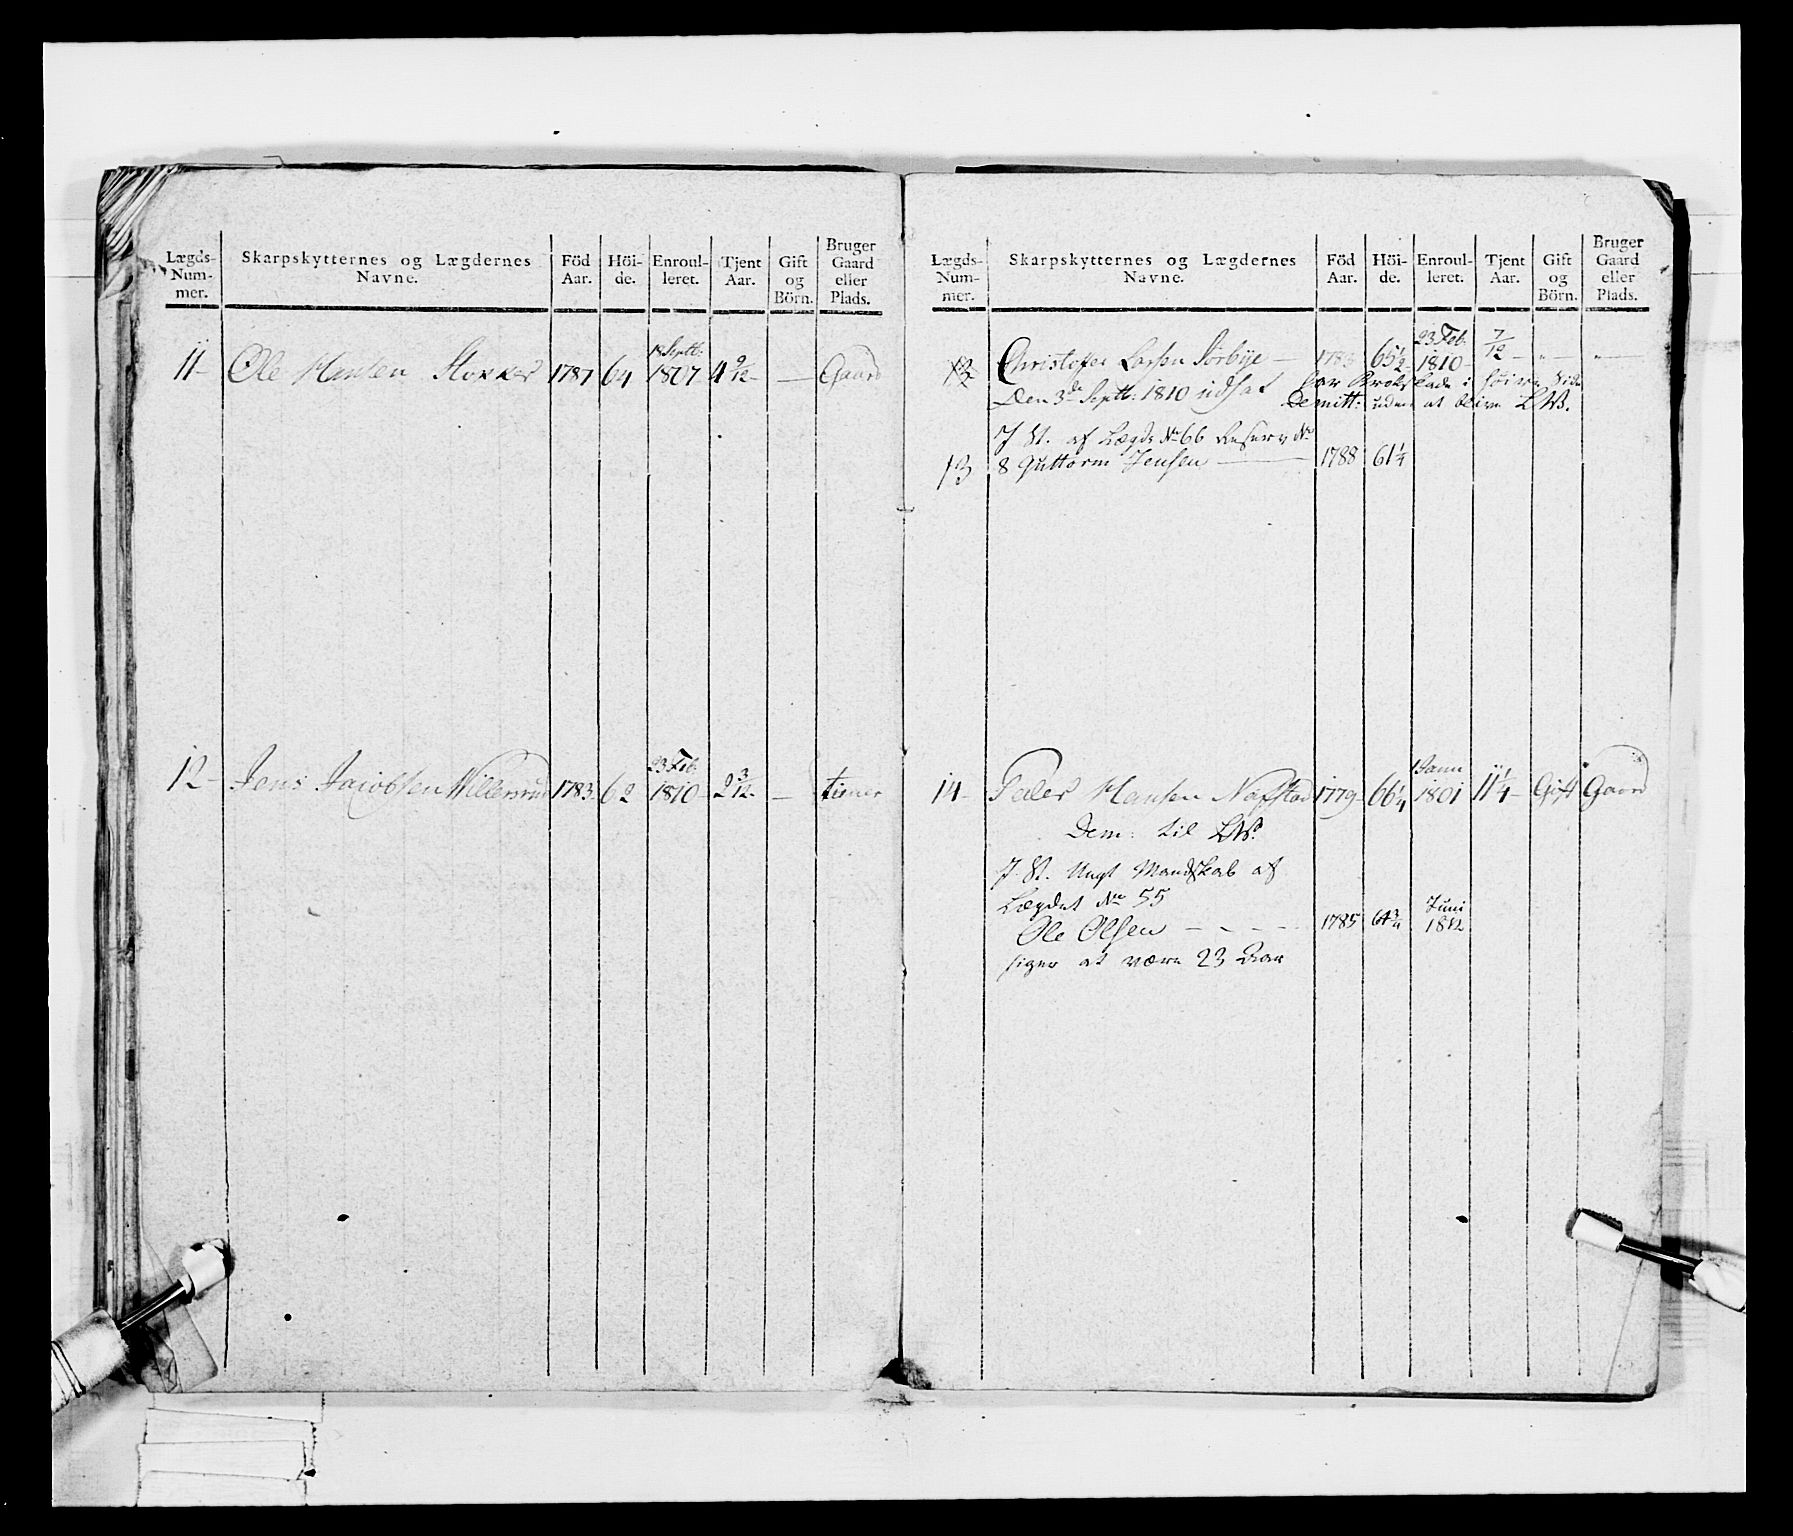 Lægds-Num-mer. Skarpskytternes og Lægdernes Navne. Föd Aar. Höi-de. Enroul-leret. Tjent Aar. Gift og Börn. Bruger Gaard eller Plads.
11- Ole Hansen Stokker 1787 64 18 Septb: 1807 4 9/12 - — Gaard
12- Jens Jacobsen Willersrud 1783 62 23 Feb. 1810 2 3/12 - — tiener
Lægds-Num-mer. Skarpskytternes og Lægdernes Navne. Föd Aar. Höi-de. Enroul-leret. Tjent Aar. Gift og Börn. Bruger Gaard eller Plads.
13 Christofer Larsen Sörbye — 1783 65 1/2 23 Feb. 1810 - 7/12 -
Den 3de Septb: 1810 udsat for Brokskade i höire Side
Demitt: uden at blive LW.
I St. af Lægds No 66 Reserv No
13 8 Guttorm Jensen — 1788 61 1/4
14- Peder Hansen Nafstad 1779 66 1/4 1 Janu 1801 11 1/4 - Gift Gaard
Dem: til LW.
I St. Ungt Mandskab af
Lægdet No 55
Ole Olsen - - - - 1785 64 3/4 Juni 1812
siger at være 23 Aar